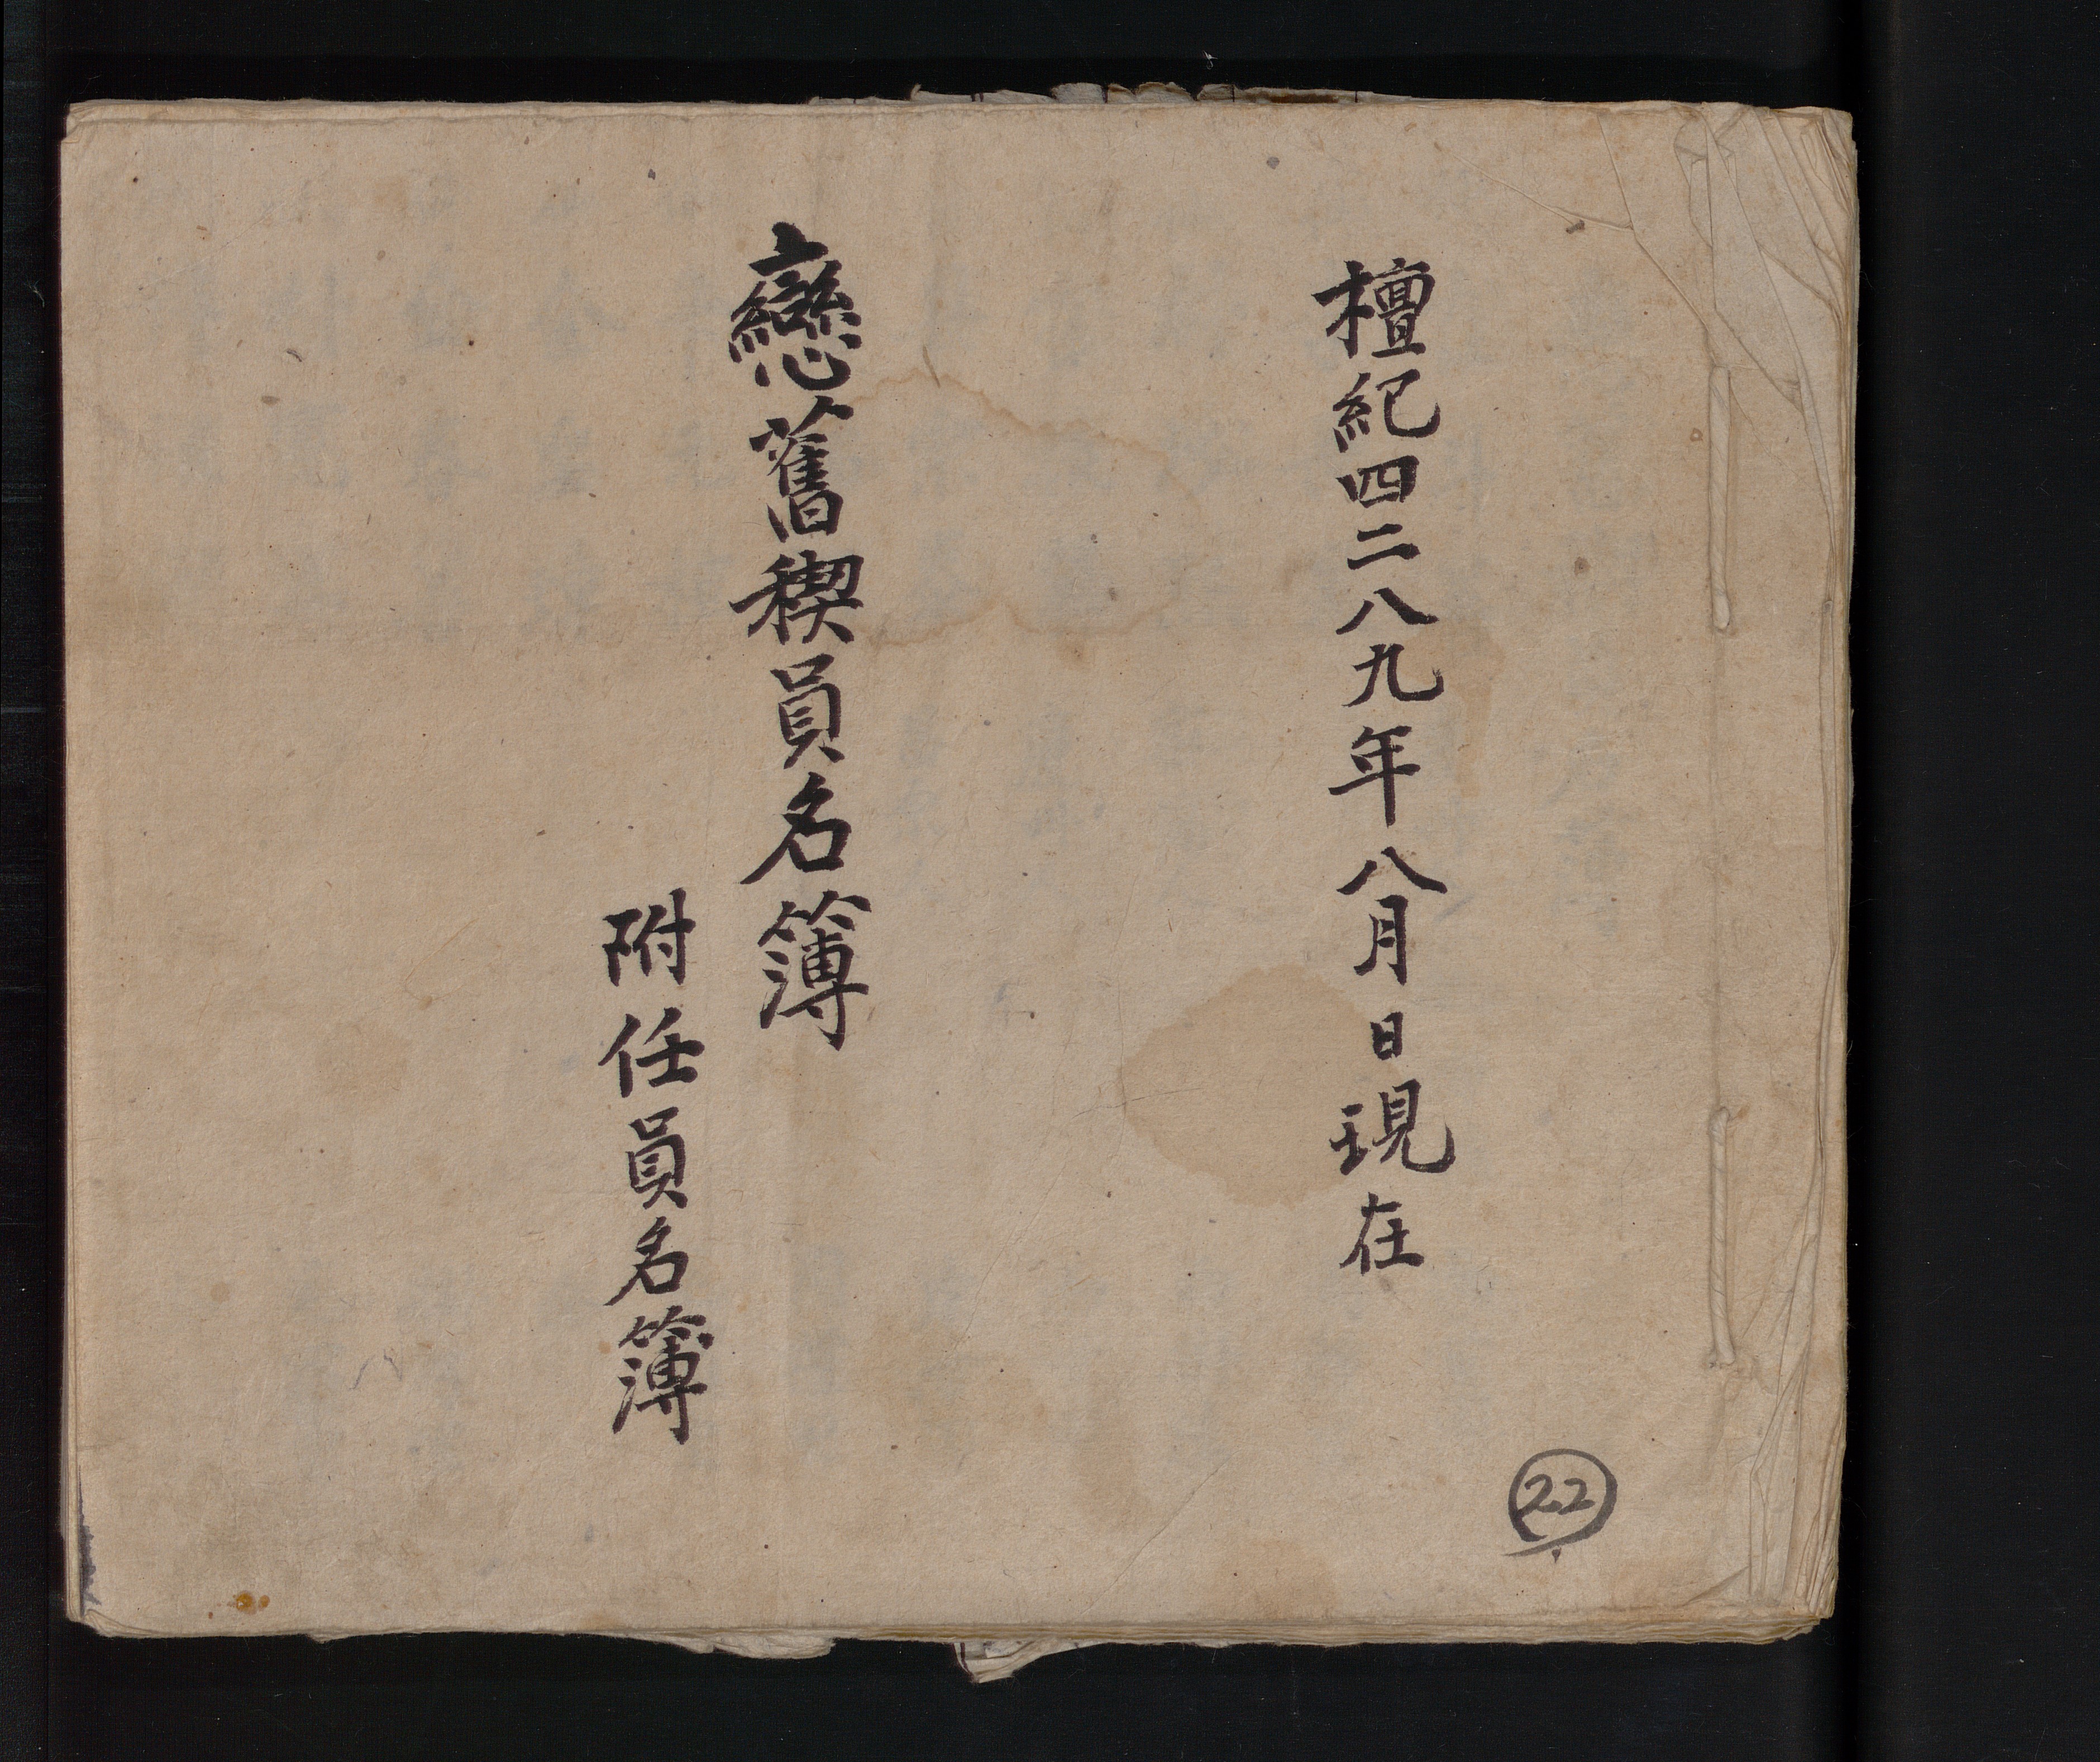 檀紀四二八九年 八月 日現在
戀舊稧員名簿
附任員名簿
22